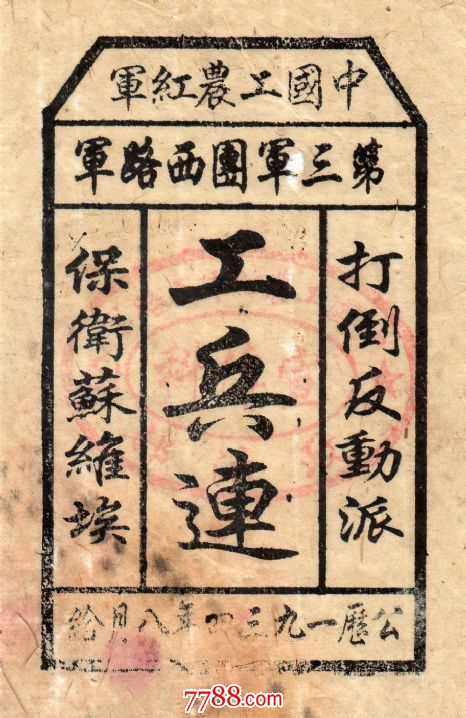 中國工農紅軍
第三軍團西路軍
打倒反動派
工兵連
保衛蘇維埃
公曆一九三四年八月給
7788.com